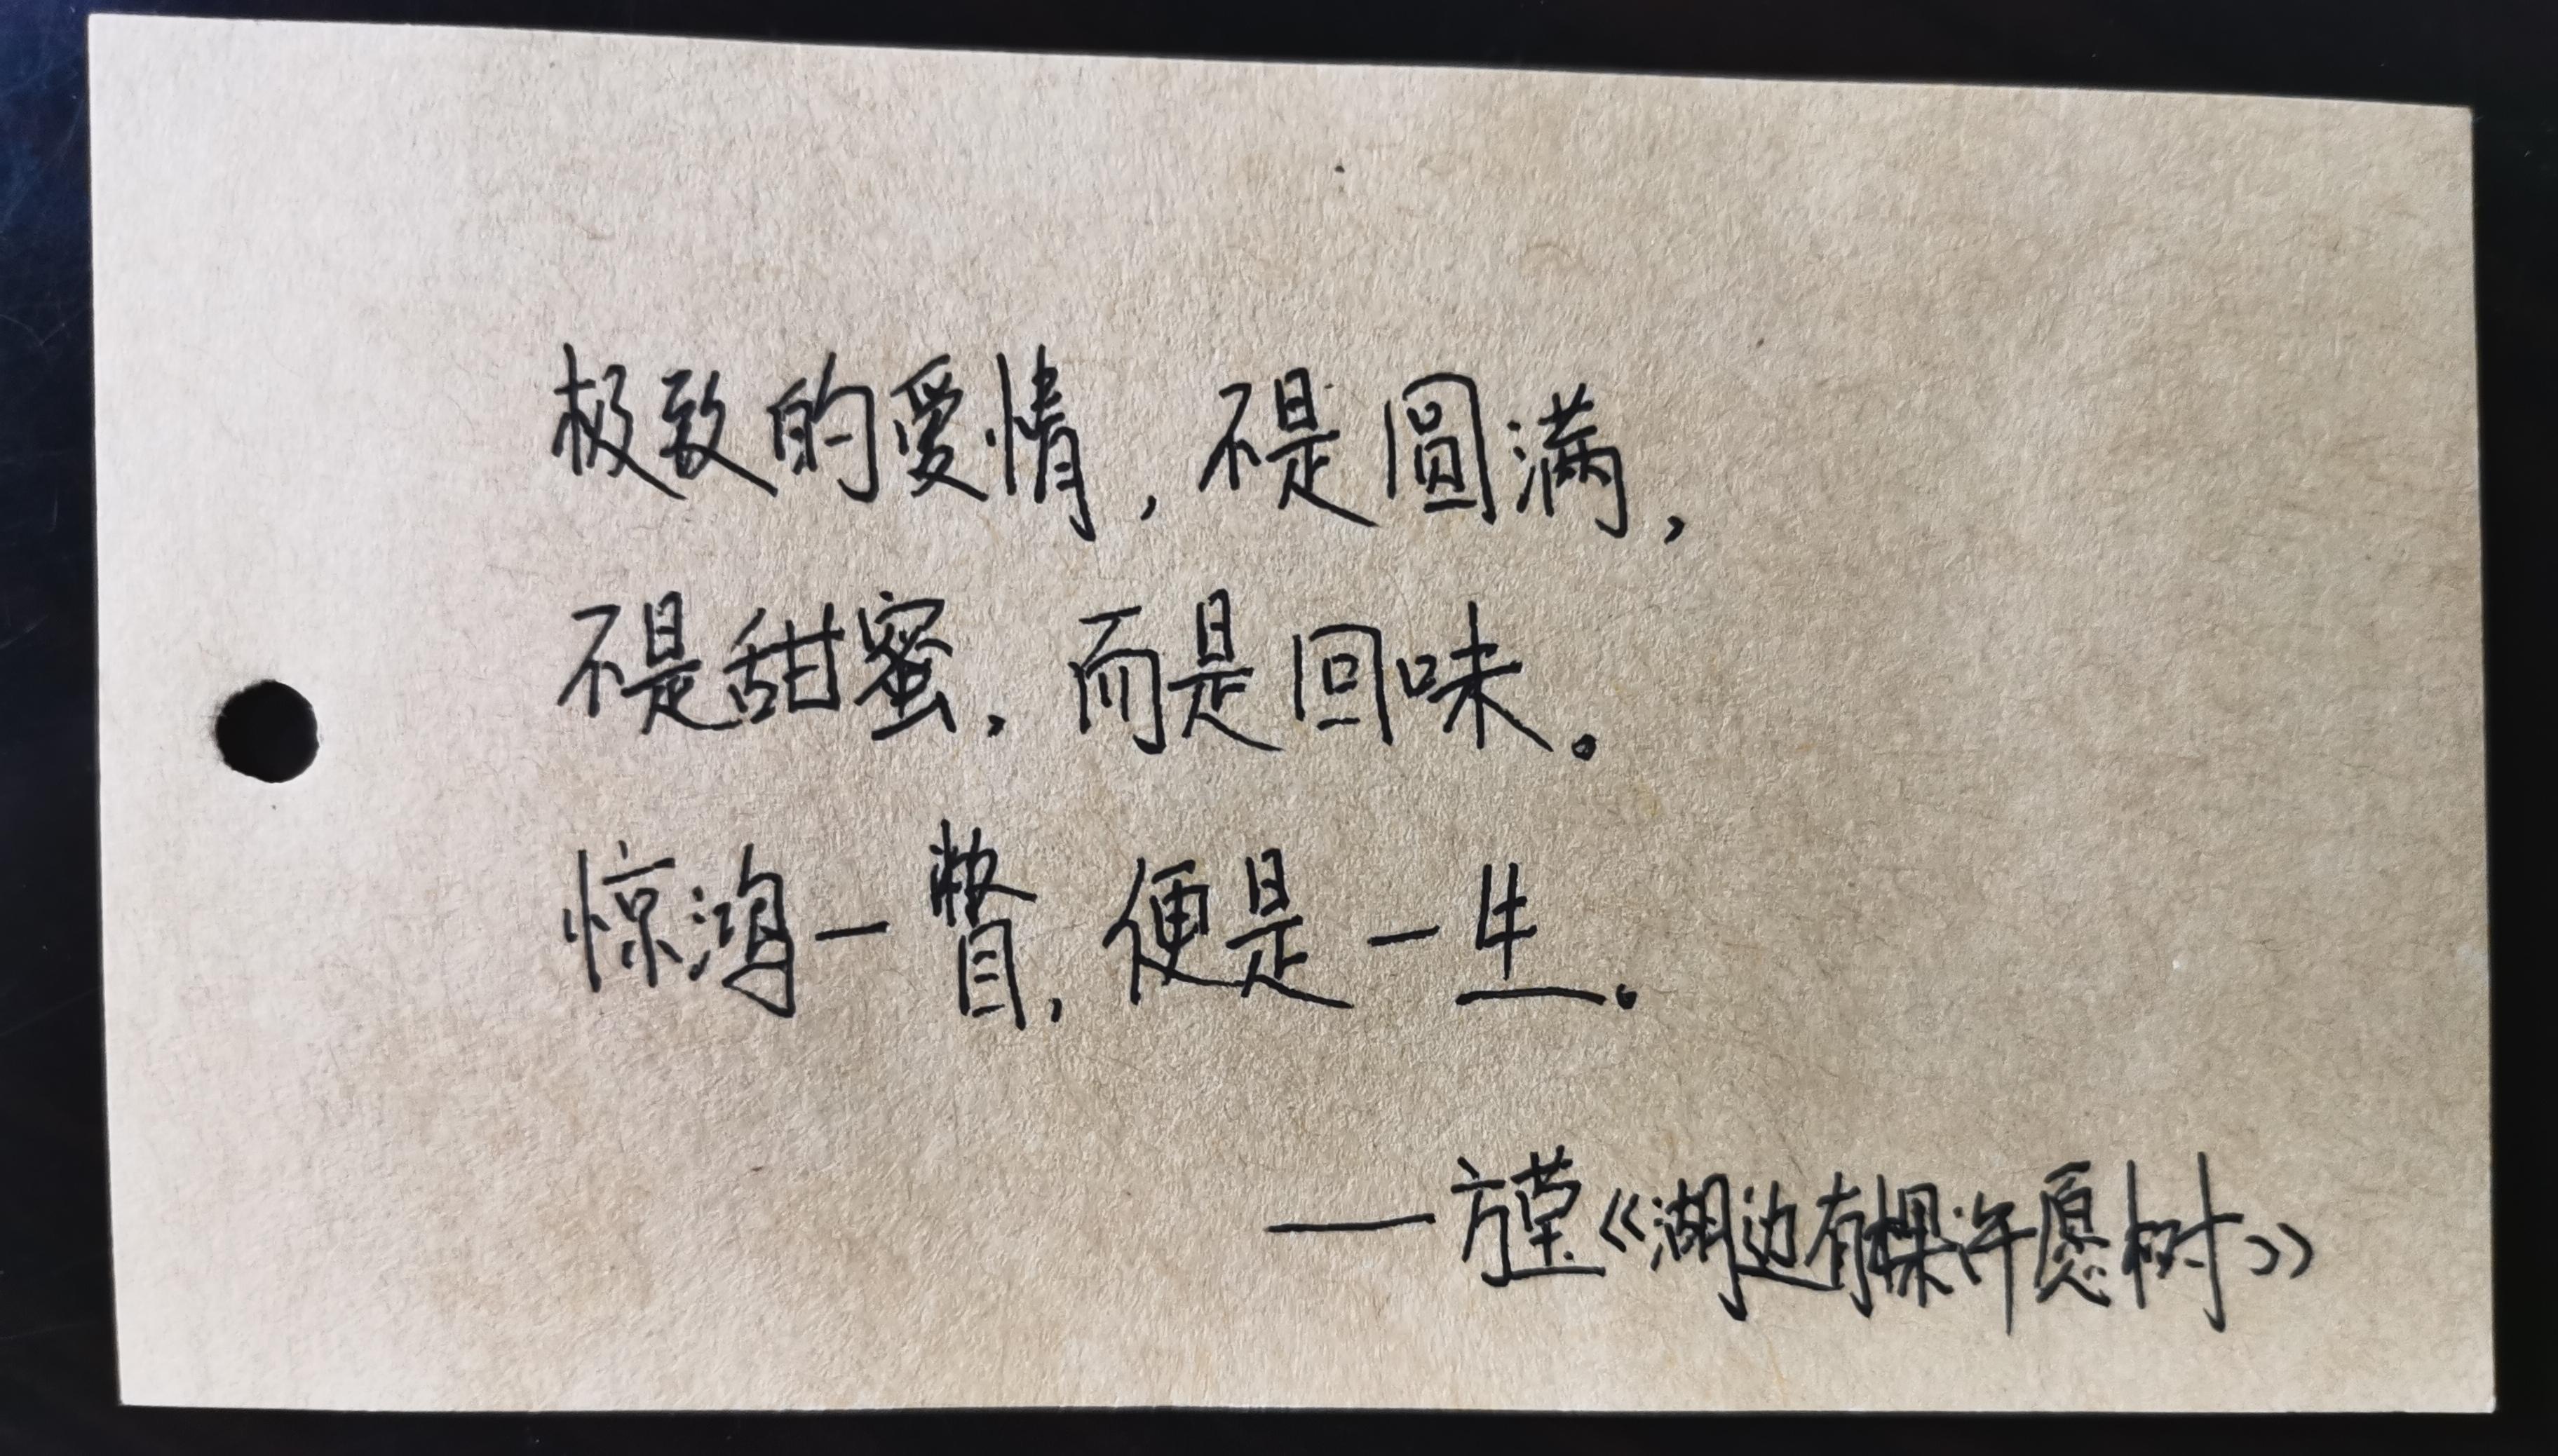 极致的爱情，不是圆满，
不是甜蜜，而是回味。
惊鸿一瞥，便是一生。
——方堇《湖边有棵许愿树》